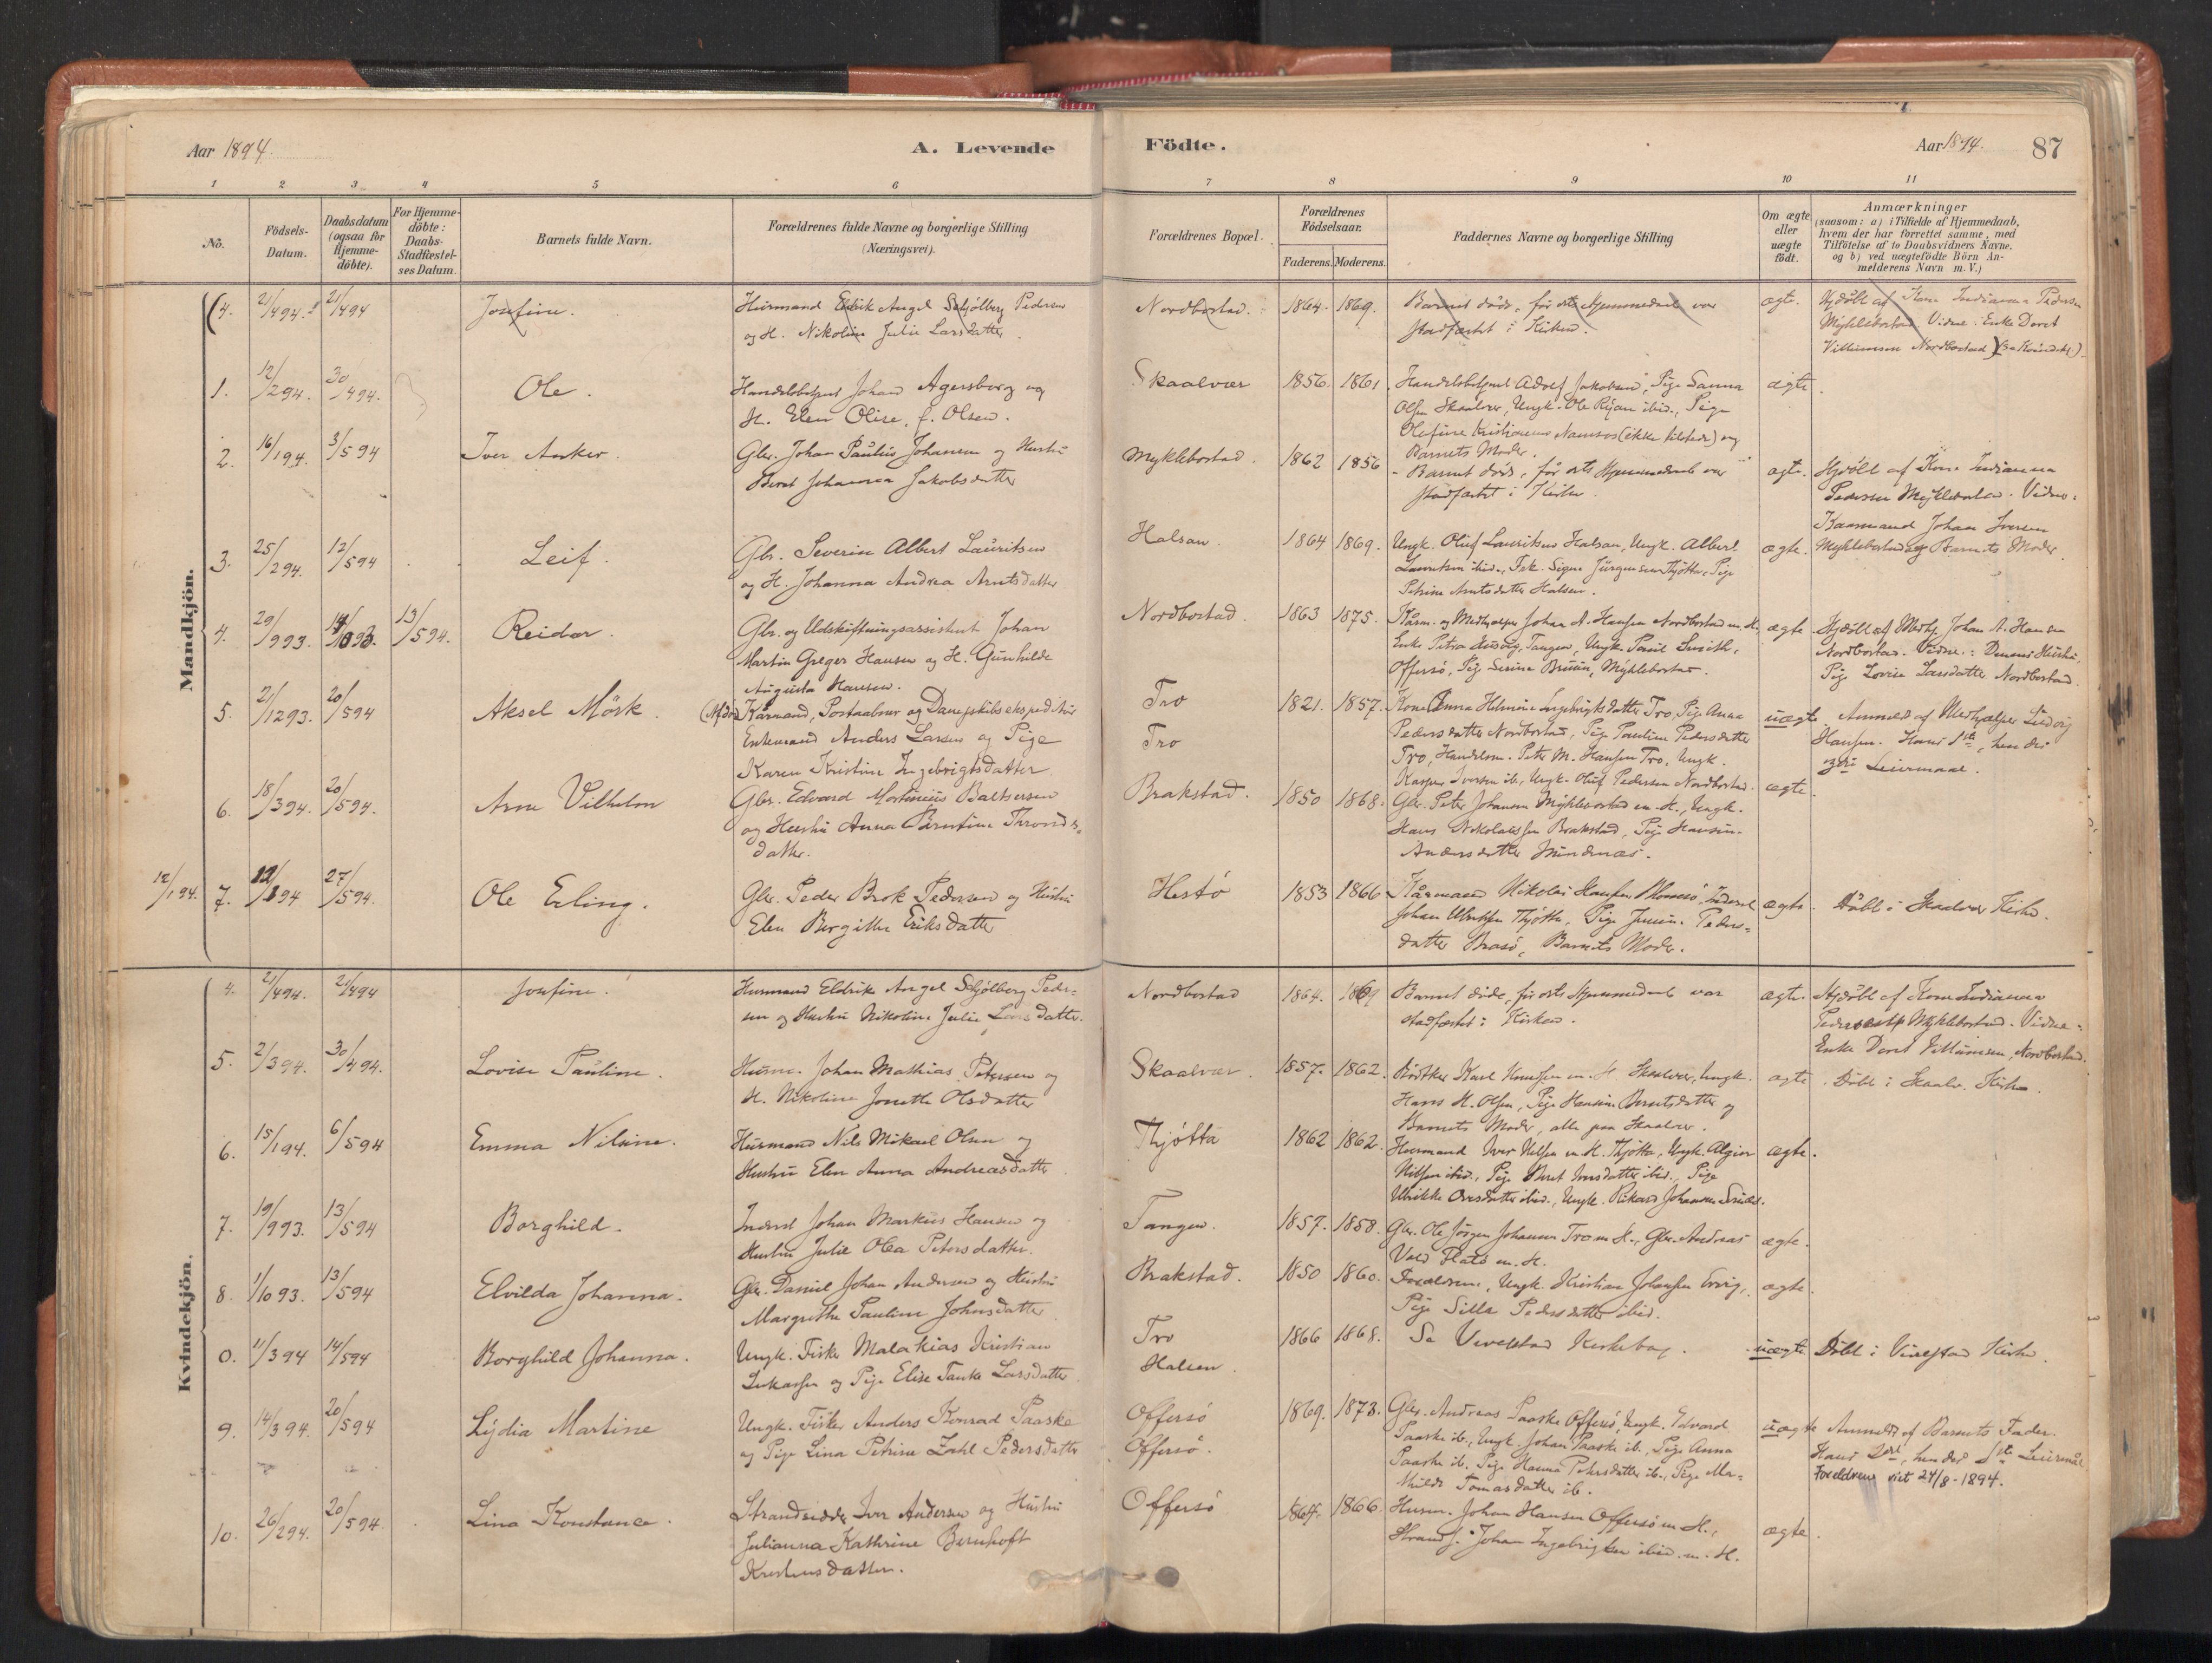 Aar 1894.
A. Levende
Födte.
Aar 1894.
87
1 2 3 4 5 6 7 8 9 10 11
No.
Födsels-
Datum.
Daabsdatum
(ogsaa for
Hjemme-
döbte).
For Hjemme-
döbte:
Daabs-
Stadfæstel-
ses Datum.
Barnets fulde Navn.
Forældrenes fulde Navne og borgerlige Stilling
(Næringsvei).
Forældrenes Bopæl.
Forældrenes
Födselsaar.
Faderens. Moderens.
Faddernes Navne og borgerlige Stilling
Om ægte
eller
uægte
födt.
Anmærkninger
(saasom: a) i Tilfælde af Hjemmedaab,
hvem der har forrettet samme, med
Tilföielse af to Daabsvidners Navne,
og b) ved uægtefödte Börn An-
melderens Navn m. V.)
Mandkjön.
(4. 2/494. 21/494 Josefine.
Husmand Eldrik Angel Schjølberg Pedersen
og H. Nikoline Julie Larsdatter.
Nordbostad. 1864. 1869.
Barnet døde, før dets Hjemmedaab var
stadfæstet i Kirken.
ægte.
Hjdöbt af Kone Indianna Pedersen
Myklebostad. Vidne: Enke Beret
Nordbostad)
1. 12/294. 30/494. Ole.
Handelsbetjent Johan Agersborg og
H. Elen Olise, f. Olsen.
Skaalvær 1856. 1861.
Handelsbetjent Adolf Jakobsen, Pige Sanna
Olsen Skaalvær, Ungk. Ole ibid., Pige
Olefine Kristiansen Namsos (ikke tilstede) og
Barnets Moder.
ægte.
2. 16/194. 3/594 Iver Anker.
Gbr. Johan Paulus Johansen og Hustru
Beret Johanna Jakobsdatter
Myklebostad. 1862 1856
Barnet døde, før dets Hjemmedaab var
stadfæstet i Kirken.
ægte.
Hjdöbt af Kone Indianna
Pedersen Myklebostad. Vidne:
Kaarmand Johan Iversen
Myklebostad og Barnets Moder.
3. 25/294. 12/594 Leif.
Gbr. Severin Albert Lauritsen
og H. Johanna Andrea Arntsdatter
Halsan. 1864 1869.
Ungk. Oluf Lauritsen Halsan, Ungk. Albert
Lauritsen ibid., Frk. Signe Jürgensen Thjøtta, Pige
Petrine Arntsdatter Halsan.
ægte.
4. 29/993. 14/1093. 13/594. Reidar.
Gbr. og Udskiftningsassistent Johan
Martin Greger Hansen og H. Gunhilde
Augusta Hansen.
Nordbostad. 1863 1875.
Kårm. og Medhjælper Johan A. Hansen Nordbostad m. H.,
Enke Petra Tangen, Ungk. Paul Smith,
Offersø, Pige Serine Bruun, Myklebostad.
ægte
Hjdöbt af Medhj. Johan A. Hansen
Nordbostad. Vidne: Dennes Hustru,
Pige Lovise Larsdatter Nordbostad.
5. 21/1293. 20/594 Aksel Mörk.
Kårmand, Postaabner og Dampskibsekspeditör
Enkemand Anders Larsen og Pige
Karen Kristine Ingebrigtsdatter
Tro
Tro
1821. 1857.
Kone Anna Helmine Ingebrigtsdatter Tro, Pige Anna
Pedersdatter Nordbostad, Pige Pauline Pedersdatter
Tro, Handlesm. Peter M. Hansen Tro, Ungk.
Kasper Iversen ib., Ungk. Oluf Pedersen Nordbostad.
uægte.
Anmeldt af Medhjælper Ludvig
Hansen. Hans 1ste, hendes
3die Leiermaal.
6. 18/394. 20/594. Arne Vilhelm
Gbr. Edvard Mortinius Baltsersen
og Hustru Anna Berntine Thronds-
datter.
Brakstad. 1850 1868.
Gbr. Peter Johansen Myklebostad m. H., Ungk.
Hans Nikolaisen Brakstad, Pige Hansine
Andersdatter Mindenæs.
ægte.
12/194.
7. 12/194 27/594. Ole Erling.
Gbr. Peder Brok Pedersen og Hustru
Elen Bergitte Eriksdatter
Hestø 1853 1866
Kårmand Nikolai Hansen Inderst
Johan Thjøtta, Pige Peders-
datter Brasø, Barnets Moder.
ægte.
Döbt i Skaalvær Kirke.
Kvindekjön.
4. 2/494. 21/494 Josefine.
Husmand Eldrik Angel Schjølberg Peder-
sen og Hustru Nikoline Julie Larsdatter.
Nordbostad 1864. 1869
Barnet døde, før dets Hjemmedaab var
stadfæstet i Kirken.
ægte.
Hjdöbt af Kone Indianna
Pedersen Myklebostad. Vidne:
Enke Beret Nordbostad.
5. 2/394. 30/494. Lovise Pauline.
Husm. Johan Mathias Petersen og
H. Nikoline Jonette Olsdatter
Skaalvær. 1857. 1862.
Bödtker Karl Knutsen m. H. Skaalvær, Ungk.
Hans H. Olsen, Pige Hansine Berntsdatter og
Barnets Moder, alle paa Skaalvær.
ægte.
Döbt i Skaalv. Kirke.
6. 15/194. 6/594 Emma Nilsine.
Husmand Nils Mikael Olsen og
Hustru Elen Anna Andreasdatter
Thjötta 1862 1862.
Husmand Iver Nilsen m. H. Thjøtta, Ungk. Algier
Nilsen ibid., Pige Beret ibid., Pige
Ulrikke ibid., Ungk. Rikard Johansen
ægte.
7. 19/993. 13/594 Borghild.
Inderst Johan Markus Hansen og
Hustru Julie Olea Petersdatter.
Tangen. 1857. 1858.
Gbr. Ole Jörgen Johansen Tro m. H., Gbr. Andreas
Vold Plads m. H.
ægte.
8. 1/1093. 13/594 Elvilda Johanna.
Gbr. Daniel Johan Andersen og Hustru
Margrethe Pauline Johnsdatter
Brakstad. 1850 1860.
Forældrene, Ungk. Kristian Johansen
Pige Silla Pedersdatter ibid.
ægte.
0. 11/394 14/594 Borghild Johanna.
Ungk. Fisker Malakias Kristian
Lukassen og Pige Elise Tanke Larsdatter
Tro
Halsan.
1866 1868.
Se Vevelstad Kirkebog.
uægte
Döbt i Vevelstad Kirke.
9. 14/394. 20/594 Lydia Martine
Ungk. Fisker Anders Konrad Paaske
og Pige Lina Petrine Zahl Pedersdatter
Offersö
Offersö.
1869. 1873.
Gbr. Andreas Paaske Offersö, Ungk. Edvard
Paaske ib., Ungk. Johan Paaske ib., Pige Anna
Paaske ib., Pige Hanna Petersdatter ib., Pige Ma-
thilde Tomasdatter ib.
uægte
Anmeldt af Barnets Fader.
Hans 2det, hendes 1ste Leiermål.
Forældrene viet 24/8-1894.
10. 26/294. 20/594. Lina Konstance.
Strandsidder Iver Andersen og Hustru
Julianna Kathrine Bernhoft
Kristensdatter.
Offersö 1866.
Husm. Johan Hansen Offersö m. H.,
Strands. Johan Ingebrigtsen ibid. m. H.
ægte.